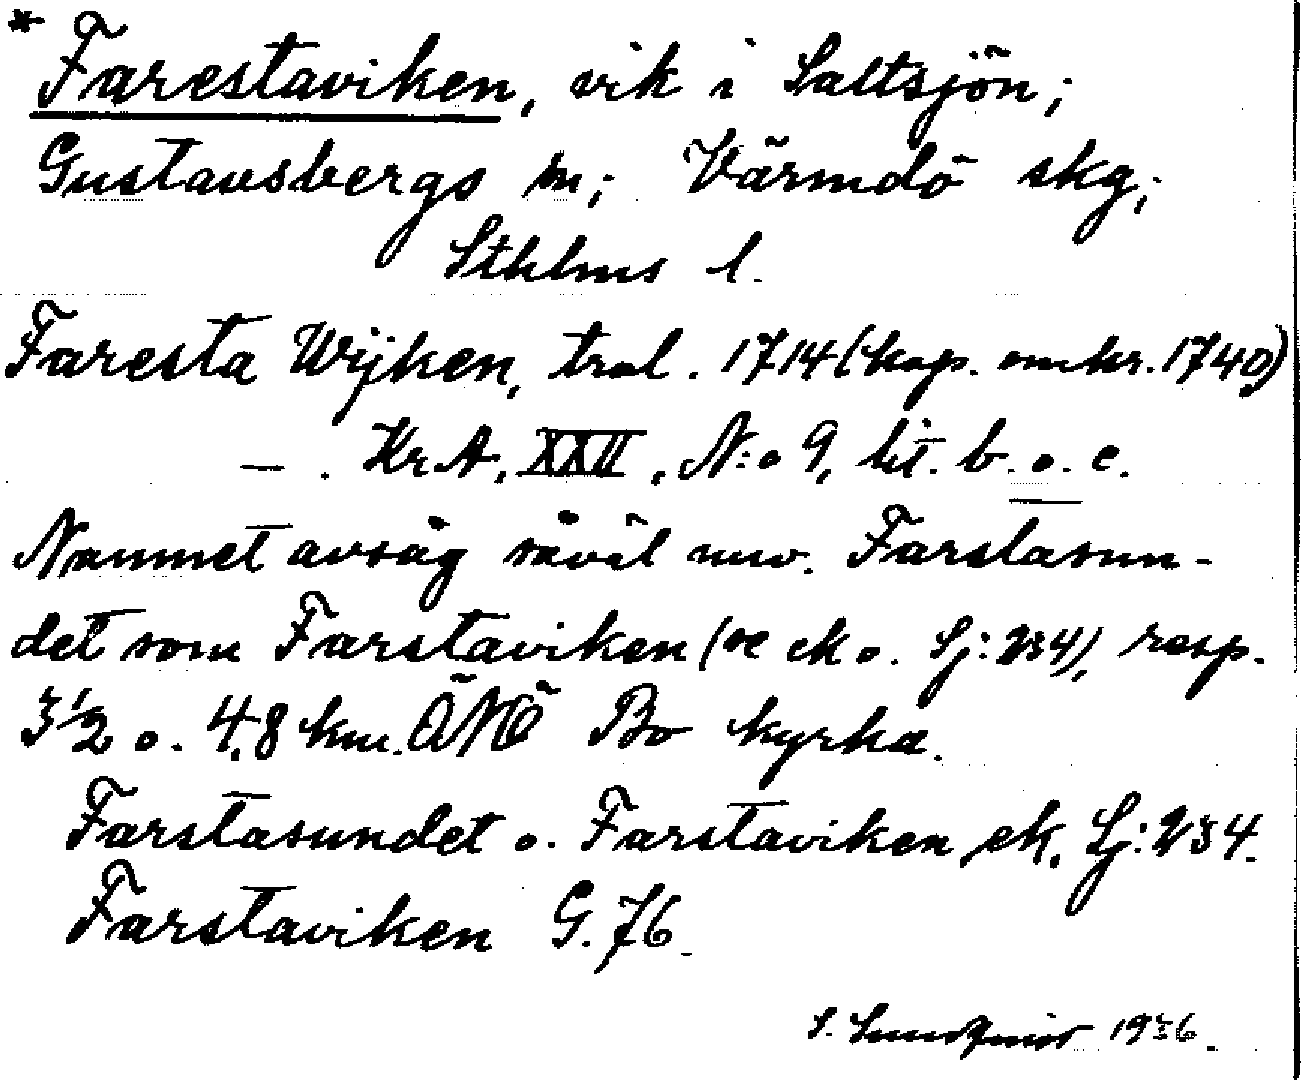 * Farestaviken, vik i Saltsjön;
Gustavsbergs sn; Värmdö skg;
Sthlms l.
Faresta Wijken, tral. 1714 (kop. omkr. 1740)
— . Kr. A. XXII, N:o 9, lit. b. o. c.
Namnet avsåg såväl nuv. Farstasun-
det som Farstaviken (se ek o. Lj: 234), resp.
3 1/2 o. 4,8 km. ÖNÖ Bo kyrka.
Farstasundet o. Farstaviken ek. Lj: 234.
Farstaviken G. 76.
S. Lundqvist 1936.